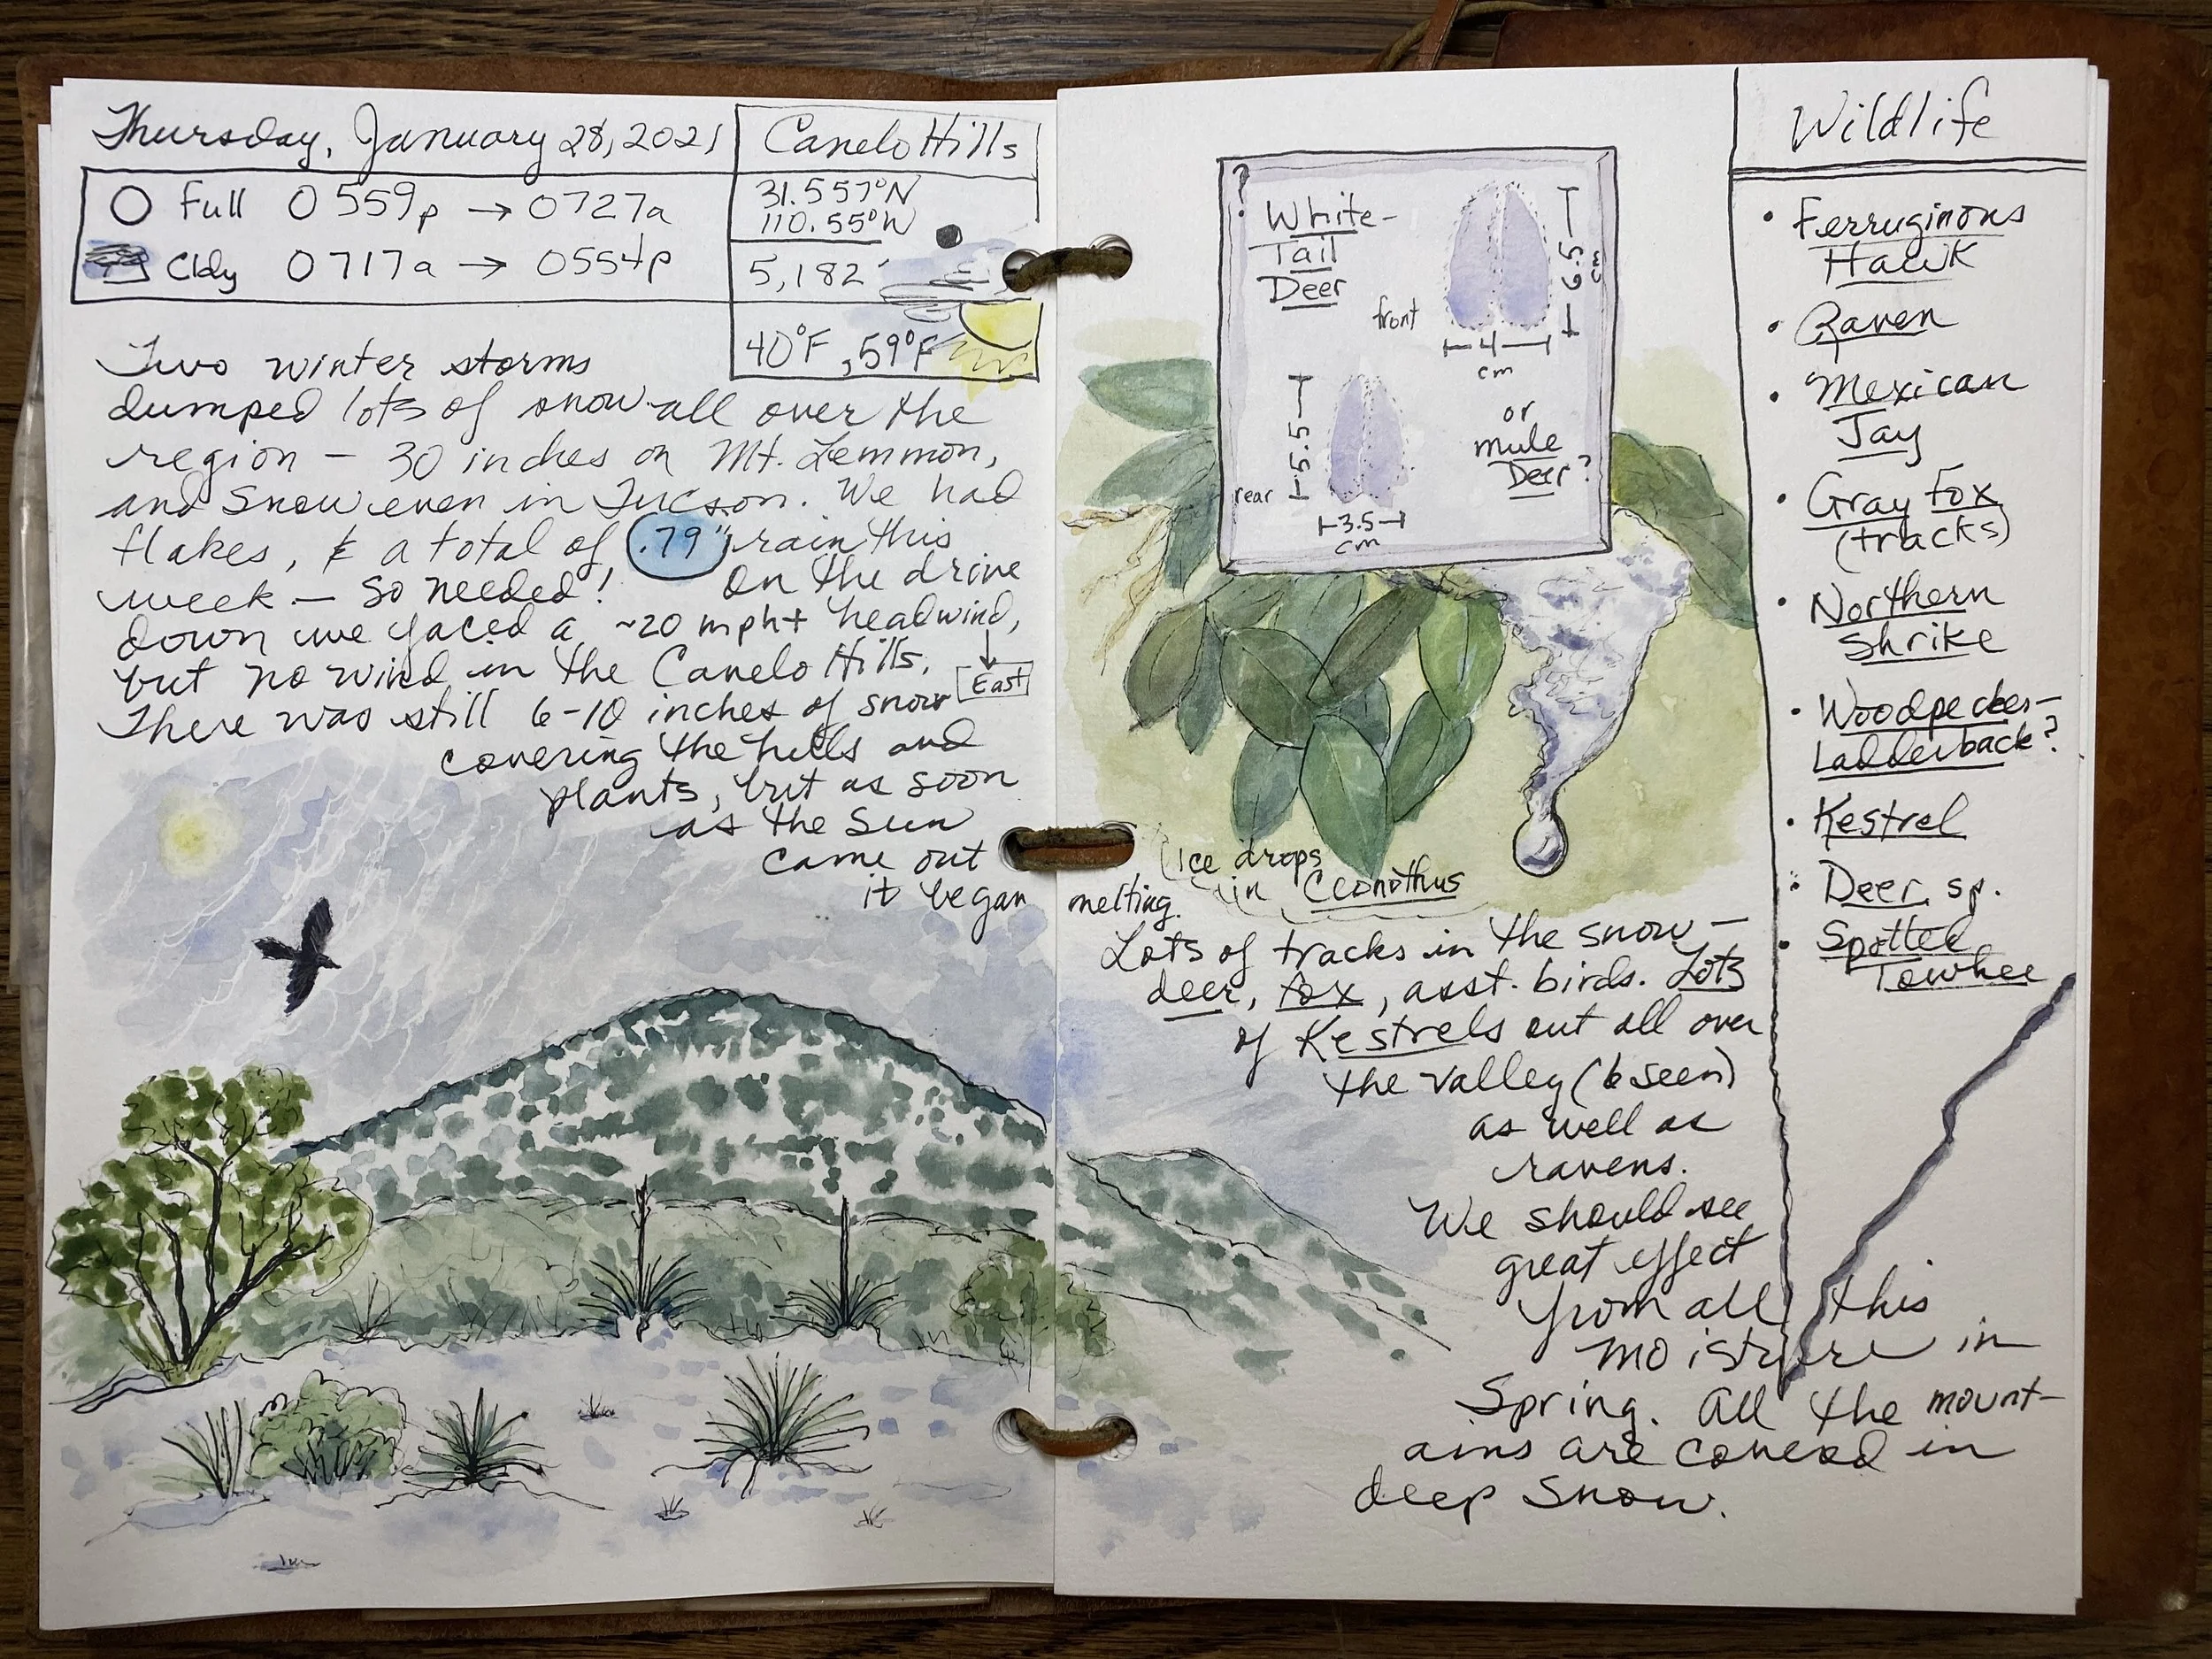 Thursday, January 28, 2021
Full 0559p → 0727a
Cldy 0717a → 0554p
Canelo Hills
31.557°N
110.55°W
5,182'
40°F, 59°F
Two winter storms
dumped lots of snow all over the
region — 30 inches on Mt. Lemmon,
and snow even in Tucson. We had
flakes, & a total of .79" rain this
week — so needed! On the drive
down we faced a ~20 mph+ headwind,
but no wind in the Canelo Hills.
East
There was still 6-10 inches of snow
covering the hills and
plants, but as soon
as the sun
came out
it began melting.
?
White-
Tail
Deer
front
6.5 cm
4
cm
rear
5.5
3.5
cm
or
mule
Deer?
Ice drops
in Ceonothus
Lots of tracks in the snow —
deer, fox, asst. birds. Lots
of Kestrels out all over
the valley (6 seen)
as well as
ravens.
We should see
great effect
from all this
moisture in
Spring. All the mount-
ains are covered in
deep snow.
Wildlife
• Ferruginous
Hawk
• Raven
• Mexican
Jay
• Gray Fox
(tracks)
• Northern
Shrike
• Woodpecker-
Ladderback?
• Kestrel
• Deer, sp.
• Spotted
Towhee